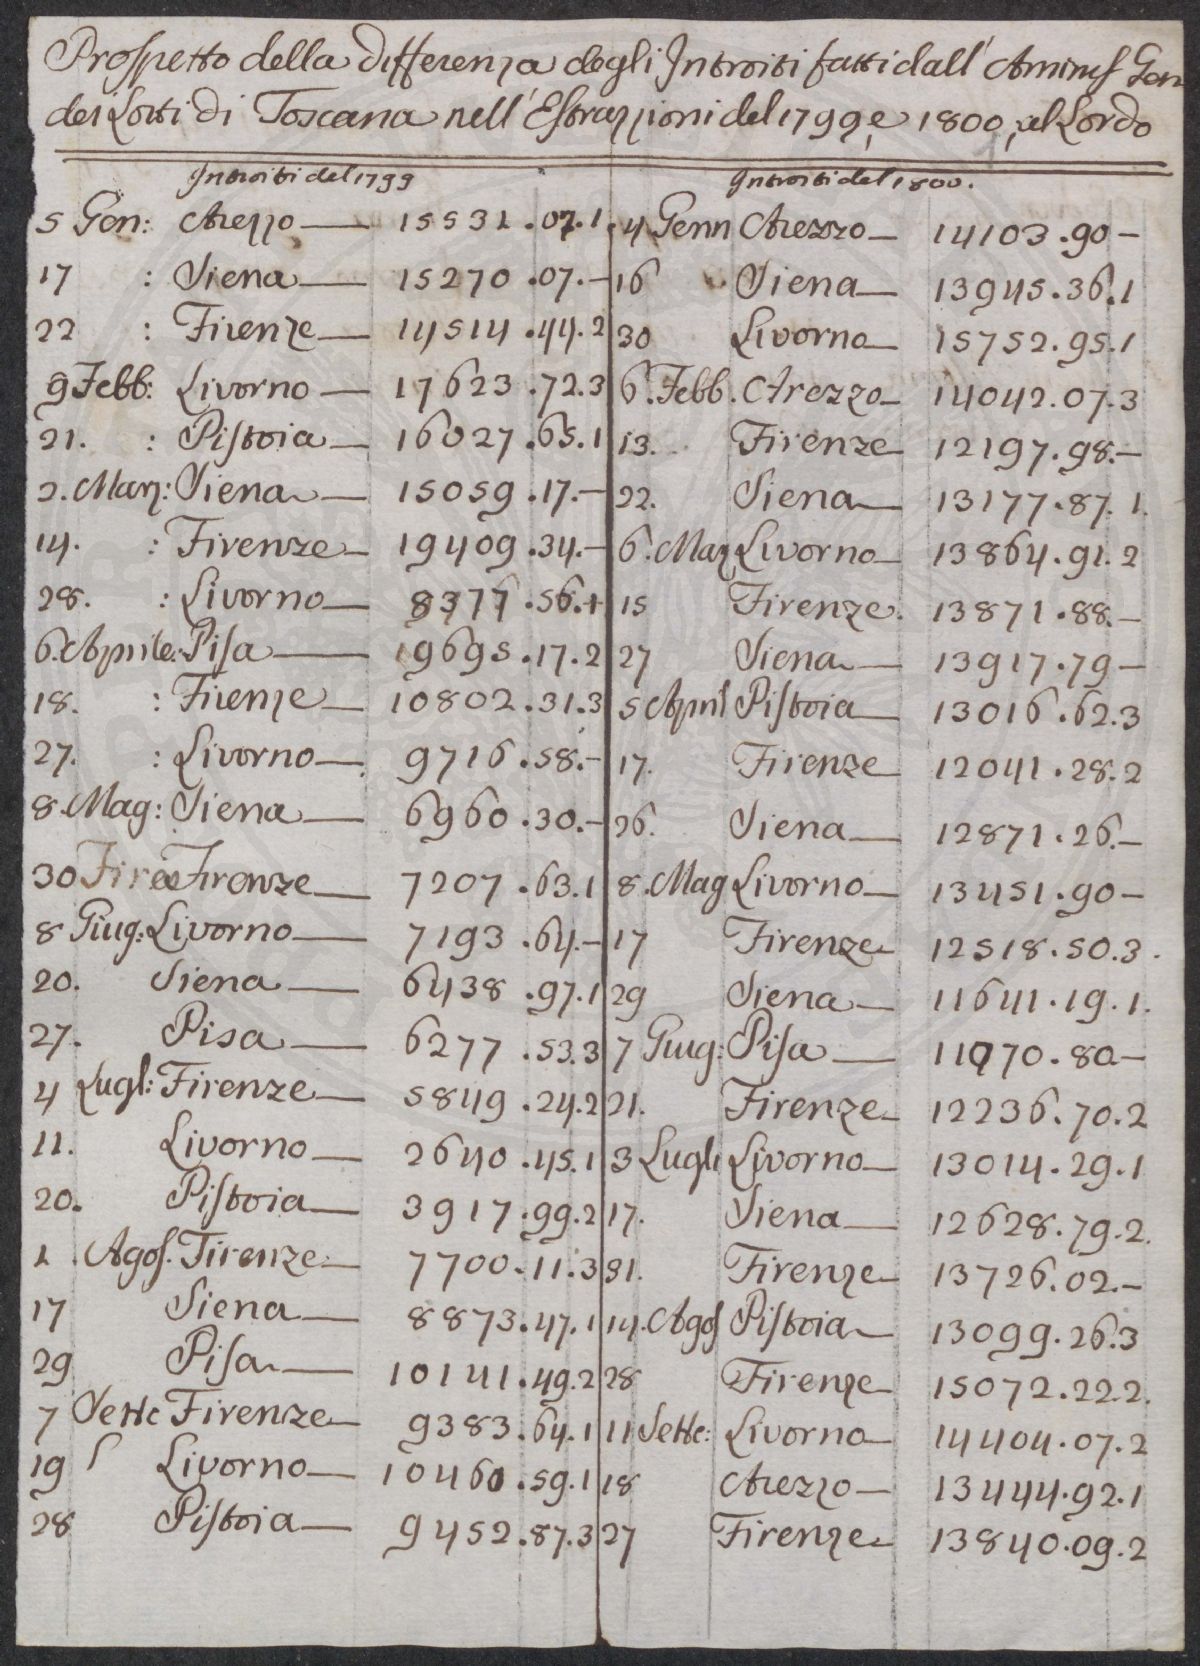 Prospetto della differenza degli Introiti fatti dall' Gen
dei Lotti di Toscana nell' Estrazzioni del 1799, e 1800, al Lordo
Introiti del 1799
5 Gen: Arezzo — 15531.07.1
17 : Siena — 15270.07.—
22 : Firenze — 14514.44.2
9 Febb: Livorno — 17623.72.3
21. : Pistoia — 16027.65.1
2. Marz: Siena — 15059.17.—
14. : Firenze — 19409.34.—
28. : Livorno — 8377.56.1
6. Aprile: Pisa — 19695.17.2
18. : Firenze — 10802.31.3
27. : Livorno — 9716.58.—
8. Mag: Siena — 6960.30.—
30 Firenze — 7207.63.1
8 Giug: Livorno — 7193.64.—
20. Siena — 6438.97.1
27. Pisa — 6277.53.3
4 Lugl: Firenze — 5849.24.2
11. Livorno — 2640.45.1
20. Pistoia — 3917.99.2
1. Agos. Firenze — 7700.11.3
17 Siena — 8873.47.1
29 Pisa — 10141.49.2
7 Sette Firenze — 9383.64.1
19 Livorno — 10460.59.1
28 Pistoia — 9452.87.3
Introiti del 1800.
4 Genn Arezzo — 14103.90 —
16 Siena — 13945.36.1
30 Livorno — 15752.95.1
6. Febb. Arezzo — 14042.07.3
13. Firenze 12197.98.—
22. Siena — 13177.87.1.
6. Marz Livorno — 13864.91.2
15 Firenze. 13871.88.—
27 Siena — 13917.79 —
5 April Pistoia — 13016.62.3
17. Firenze 12041.28.2
26. Siena — 12871.26.—
8. Mag Livorno — 13451.90 —
17 Firenze 12518.50.3.
29 Siena — 11641.19.1.
7 Giug: Pisa — 11970.80 —
21. Firenze — 12236.70.2
3 Lugli Livorno — 13014.29.1
17. Siena — 12628.79.2.
31. Firenze — 13726.02.—
14. Agos Pistoia — 13099.26.3
28 Firenze — 15072.22.2.
11 Sette: Livorno — 14404.07.2
18 Arezzo — 13444.92.1
27 Firenze 13840.09.2